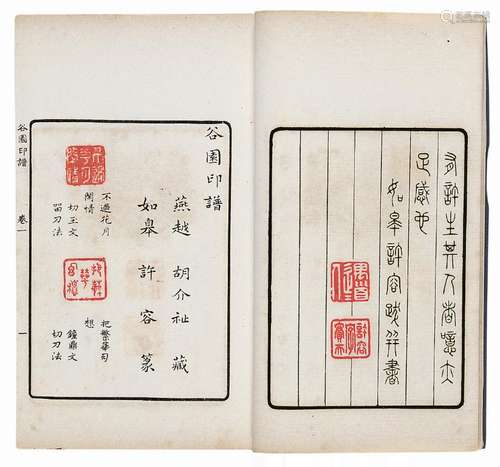 有許生其人者噫亦
足感也
如皋許容跋并書
谷園印譜
燕越 胡介祉 藏
如皋 許容 篆
不過花月
閒情
切玉文
留刀法
把繁華句
想
鐘鼎文
切刀法
谷園印譜 卷一 一